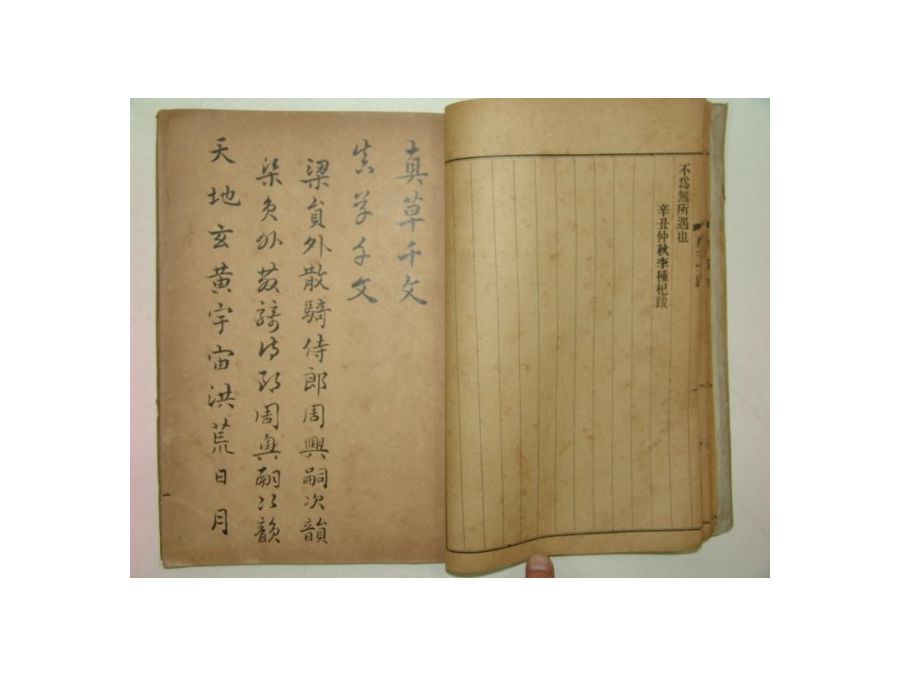 不爲無所遇也
辛丑仲秋李種杞跋
真草千文
真草千文
梁員外散騎侍郎周興嗣次韻
梁員外散騎侍郎周興嗣次韻
天地玄黃宇宙洪荒日月